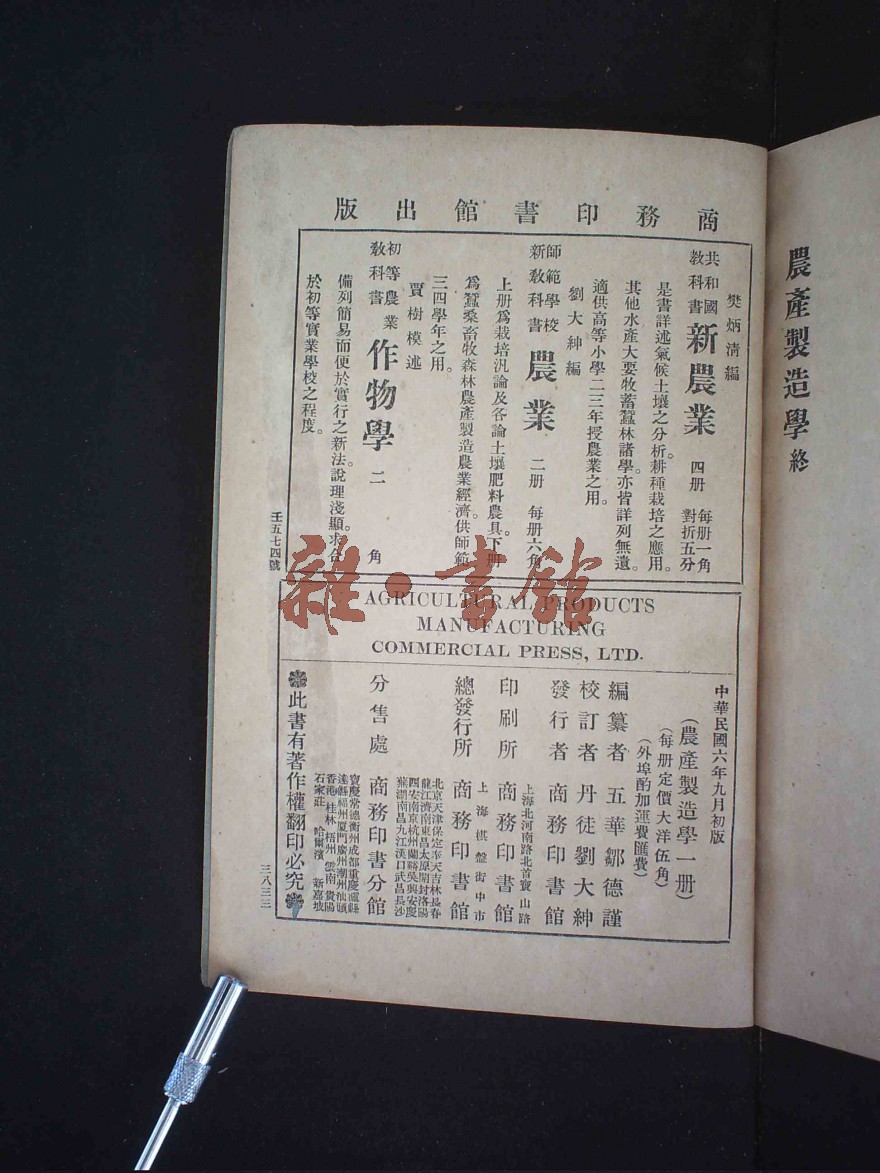 農產製造學終
商務印書館出版
樊炳清編
共和國教科書 新農業 四册 每册一角 對折五分
是書詳述氣候土壤之分析。耕種栽培之應用。
其他水產大要牧蓄蠶林諸學。亦皆詳列無遺。
適供高等小學二三年授農業之用。
劉大紳編
師範學校新教科書 農業 二册 每册六角
上册爲栽培汎論及各論土壤肥料農具。下册
爲蠶桑畜牧森林農產製造農業經濟。供師範
三四學年之用。
賈樹模述
初等農業教科書 作物學 二角
備列簡易而便於實行之新法。說理淺顯。求合
於初等實業學校之程度。
壬五七四號
AGRICULTURAL PRODUCTS
MANUFACTURING
COMMERCIAL PRESS, LTD.
中華民國六年九月初版
(農產製造學一册)
(每册定價大洋伍角)
(外埠酌加運費匯費)
編纂者 五華鄒德謹
校訂者 丹徒劉大紳
發行者 商務印書館
上海北河南路北首寶山路
印刷所 商務印書館
上海棋盤街中市
總發行所 商務印書館
北京天津保定奉天吉林長春
龍江濟南東昌太原開封洛陽
西安南京杭州蘭谿吳興安慶
蕪湖南昌九江漢口武昌長沙
分售處 商務印書分館
寶慶常德衡州成都重慶瀘縣
達縣福州廈門廣州潮州汕頭
香港桂林梧州雲南貴陽
石家莊 哈爾濱 新嘉坡
此書有著作權翻印必究
三八三三
雜·書館